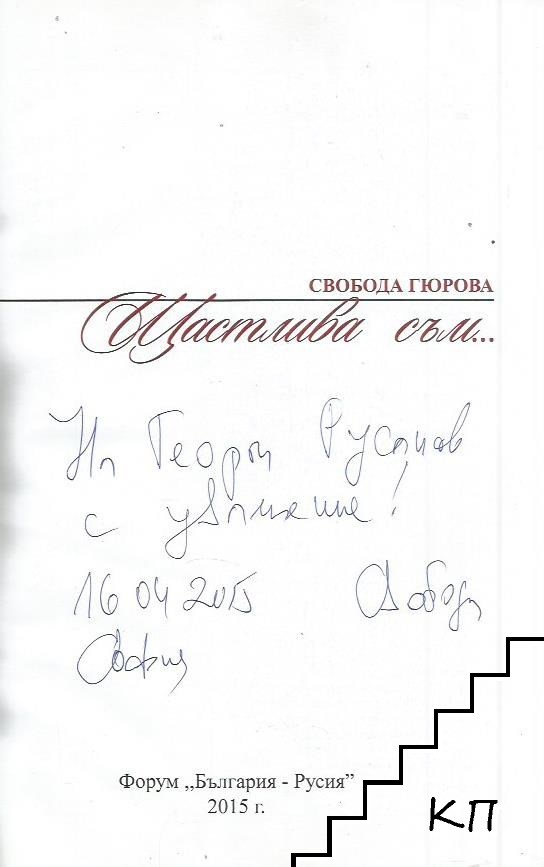 СВОБОДА ГЮРОВА
Щастлива съм...
На Георги Русанов
с уважение!
16 04 2015 Свобода
София
Форум „България - Русия”
2015 г.
КП